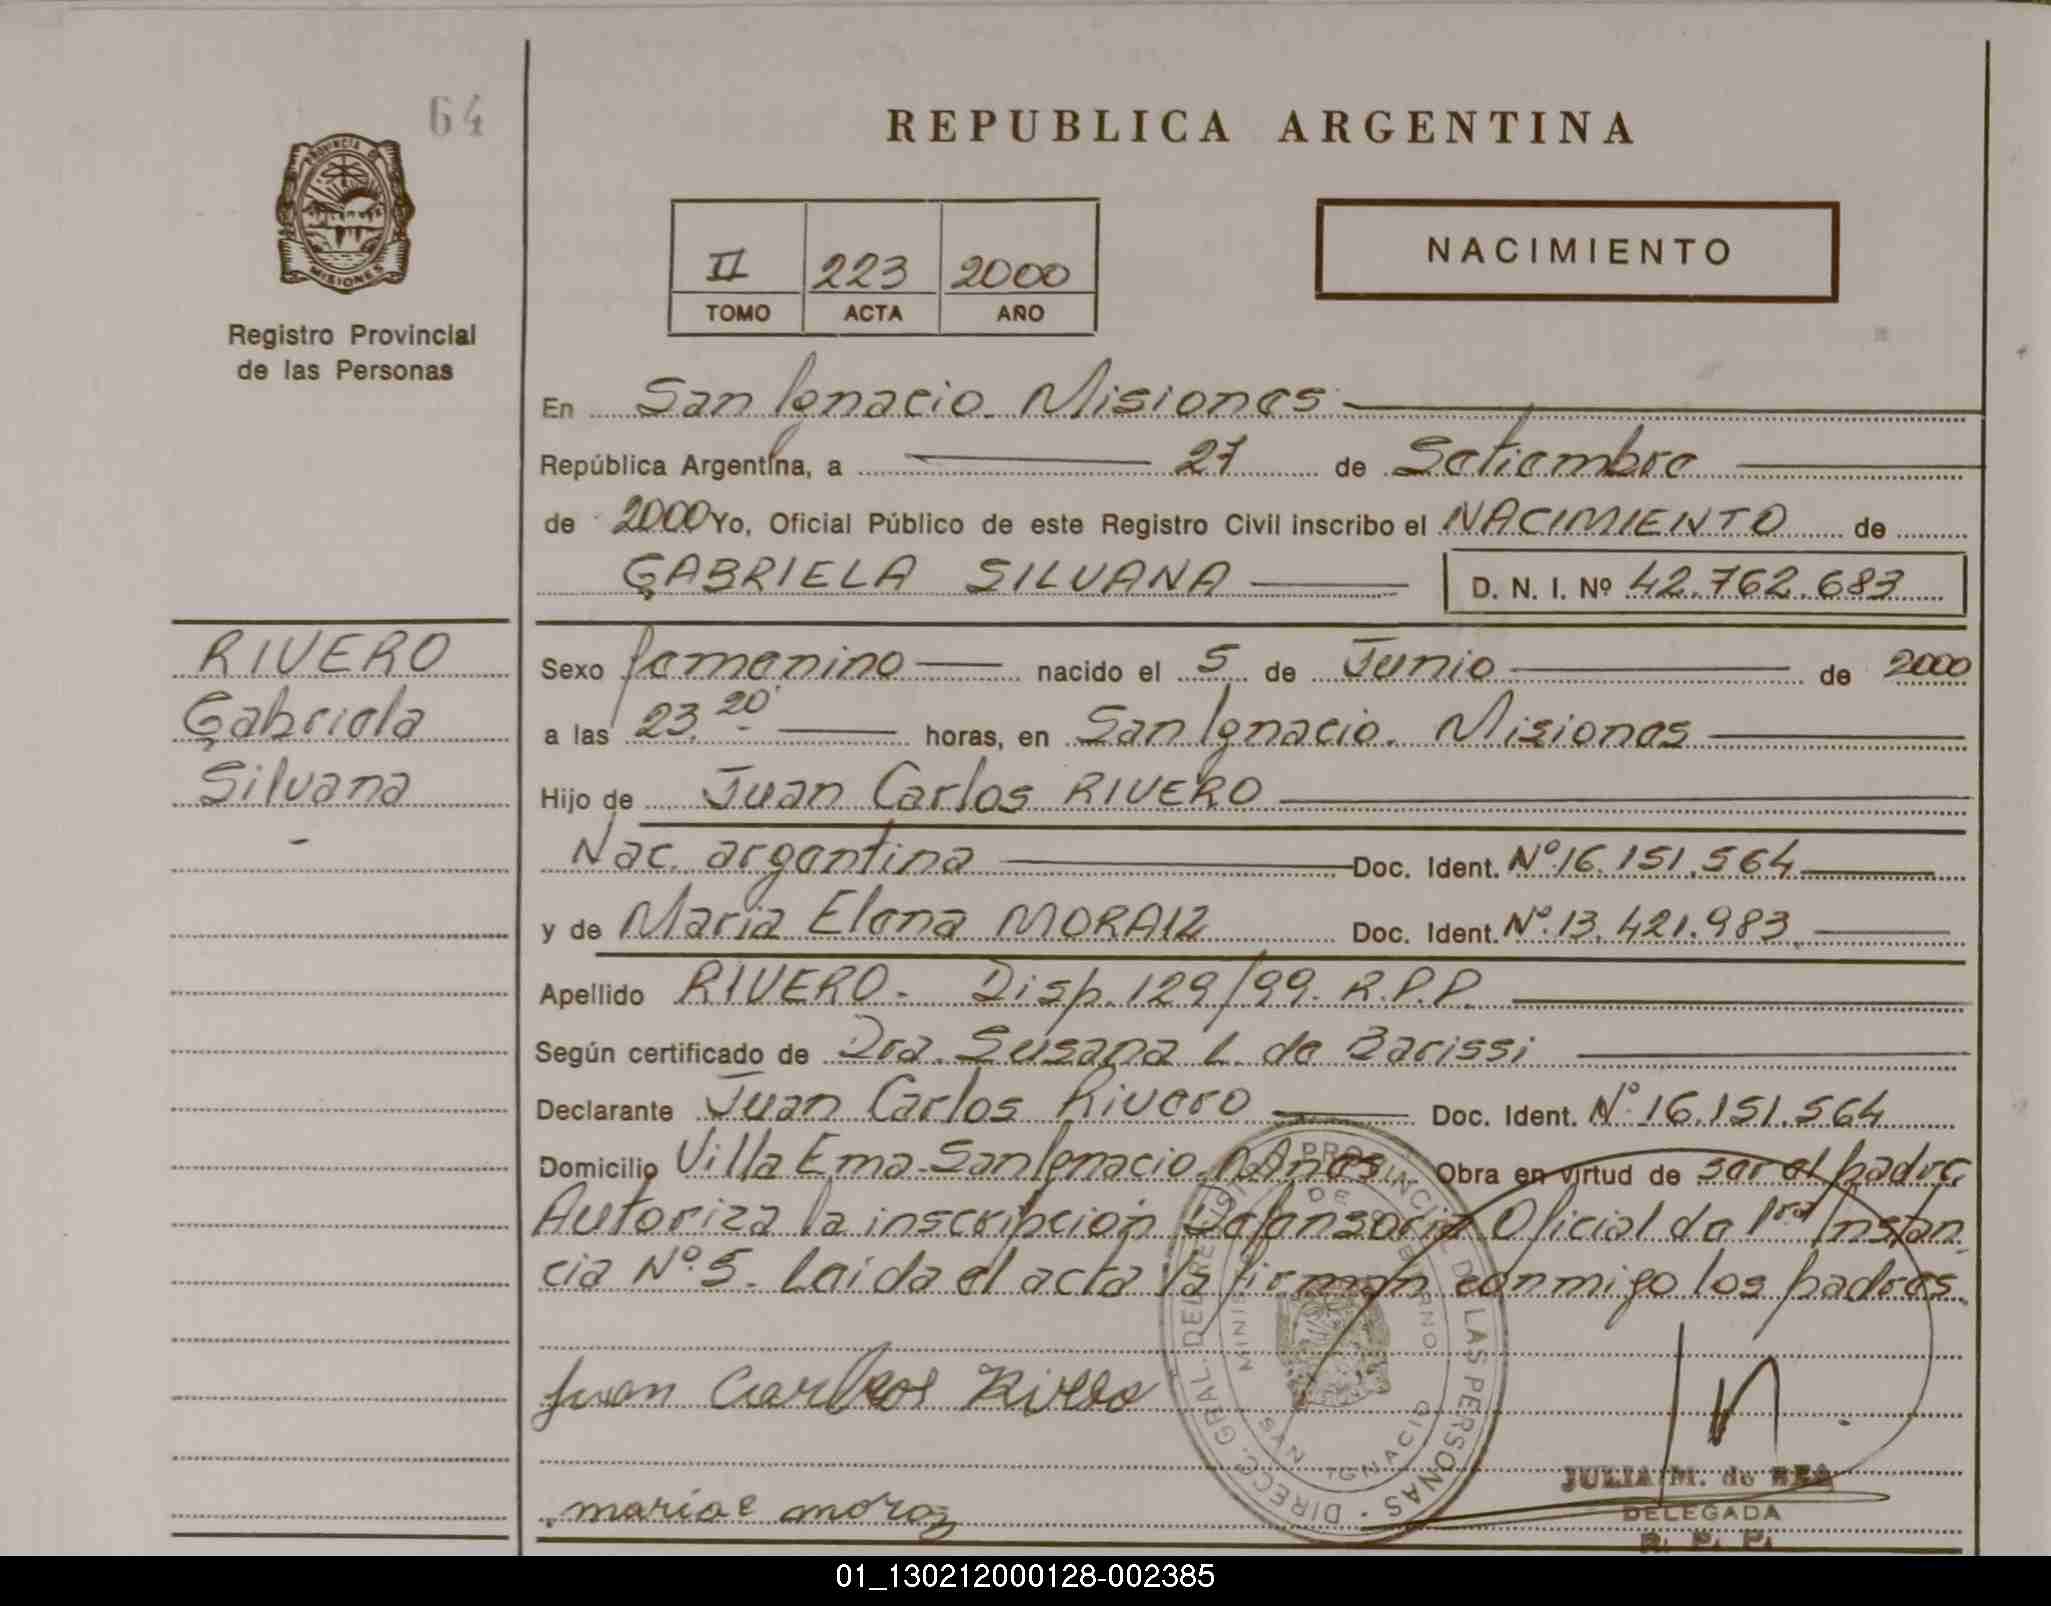 64
REPUBLICA ARGENTINA
PROVINCIA DE
MISIONES
Registro Provincial
de las Personas
II 223 2000
TOMO ACTA AÑO
NACIMIENTO
En San Ignacio. Misiones
República Argentina, a 27 de Setiembre
de 2000 Yo, Oficial Público de este Registro Civil inscribo el NACIMIENTO de
GABRIELA SILVANA D. N. I. Nº 42.762.683
RIVERO
Gabriela
Silvana
Sexo femenino nacido el 5 de Junio de 2000
a las 23.20 horas, en San Ignacio. Misiones
Hijo de Juan Carlos RIVERO
Nac. argentina Doc. Ident. Nº 16.151.564
y de Maria Elena MORAIZ Doc. Ident. Nº 13.421.983
Apellido RIVERO. Disp. 129/99. R.P.P.
Según certificado de Dra. Susana L. de Barissi
Declarante Juan Carlos Rivero Doc. Ident. Nº 16.151.564
Domicilio Villa Ema. San Ignacio. Mnes. Obra en virtud de ser el padre
Autoriza la inscripción Defensoria Oficial de 1ra Instan
cia Nº 5. Leída el acta la firman conmigo los padres.
Juan Carlos
maria e
DIRECC. GRAL. DEL REGISTRO PROVINCIAL DE LAS PERSONAS
MINISTERIO DE GOBIERNO
SAN IGNACIO
JULIA M. de REA
DELEGADA
R. P. P.
01_130212000128-002385